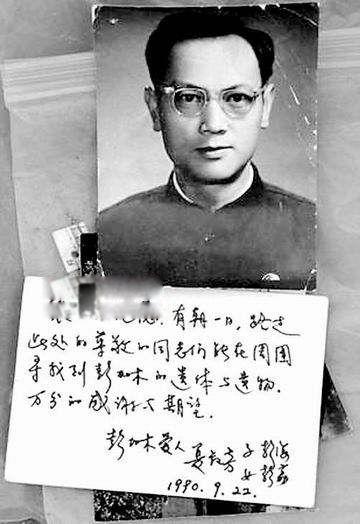 有朝一日，路过
此处的尊敬的同志们能在周围
寻找到彭加木的遗体与遗物．
万分的感谢与期望．
彭加木爱人 夏叔芳 子 彭海
女 彭荔
1990.9.22.